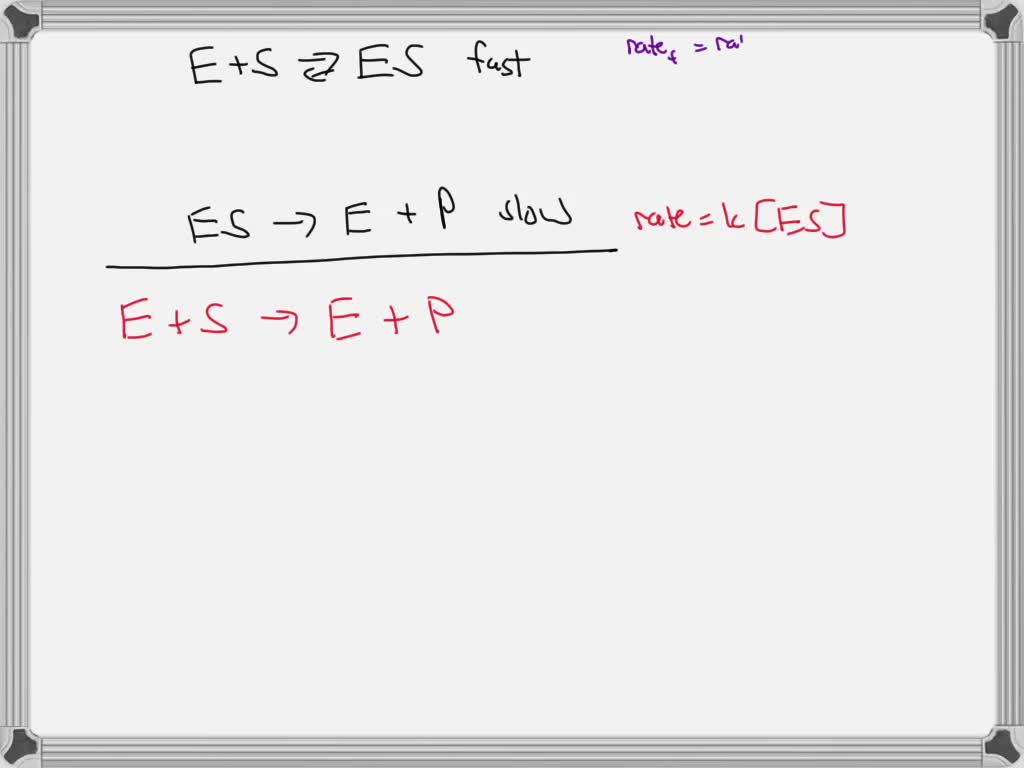 E + S ⇌ ES fast
rate_f = ra
ES → E + P slow
rate = k [ES]
E + S → E + P